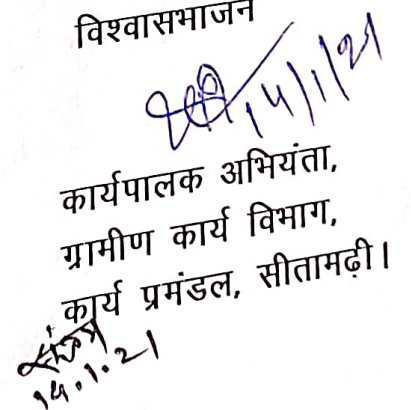 विश्वासभाजन
14/1/21
कार्यपालक अभियंता,
ग्रामीण कार्य विभाग,
कार्य प्रमंडल, सीतामढ़ी।
14.1.21